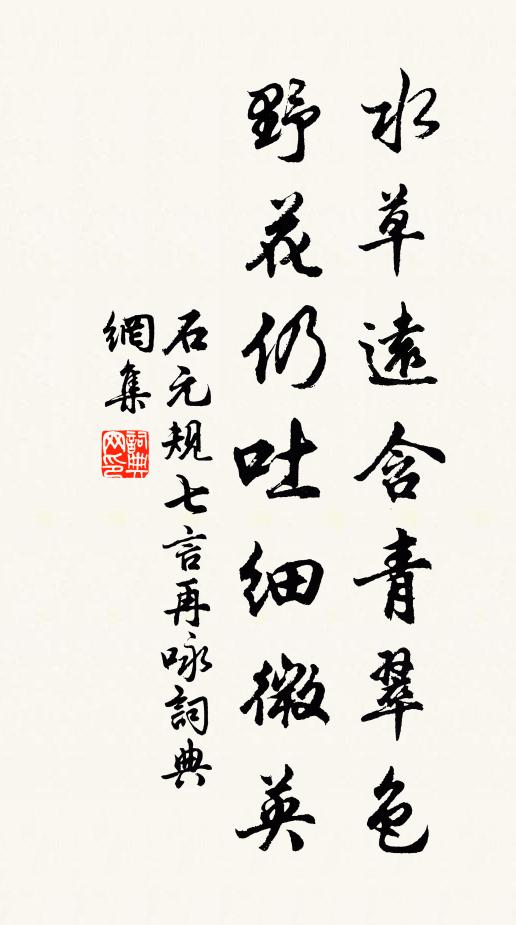 水草遠含青翠色
野花仍吐細微英
石元規七言再咏詞典
網集
詞典
网印